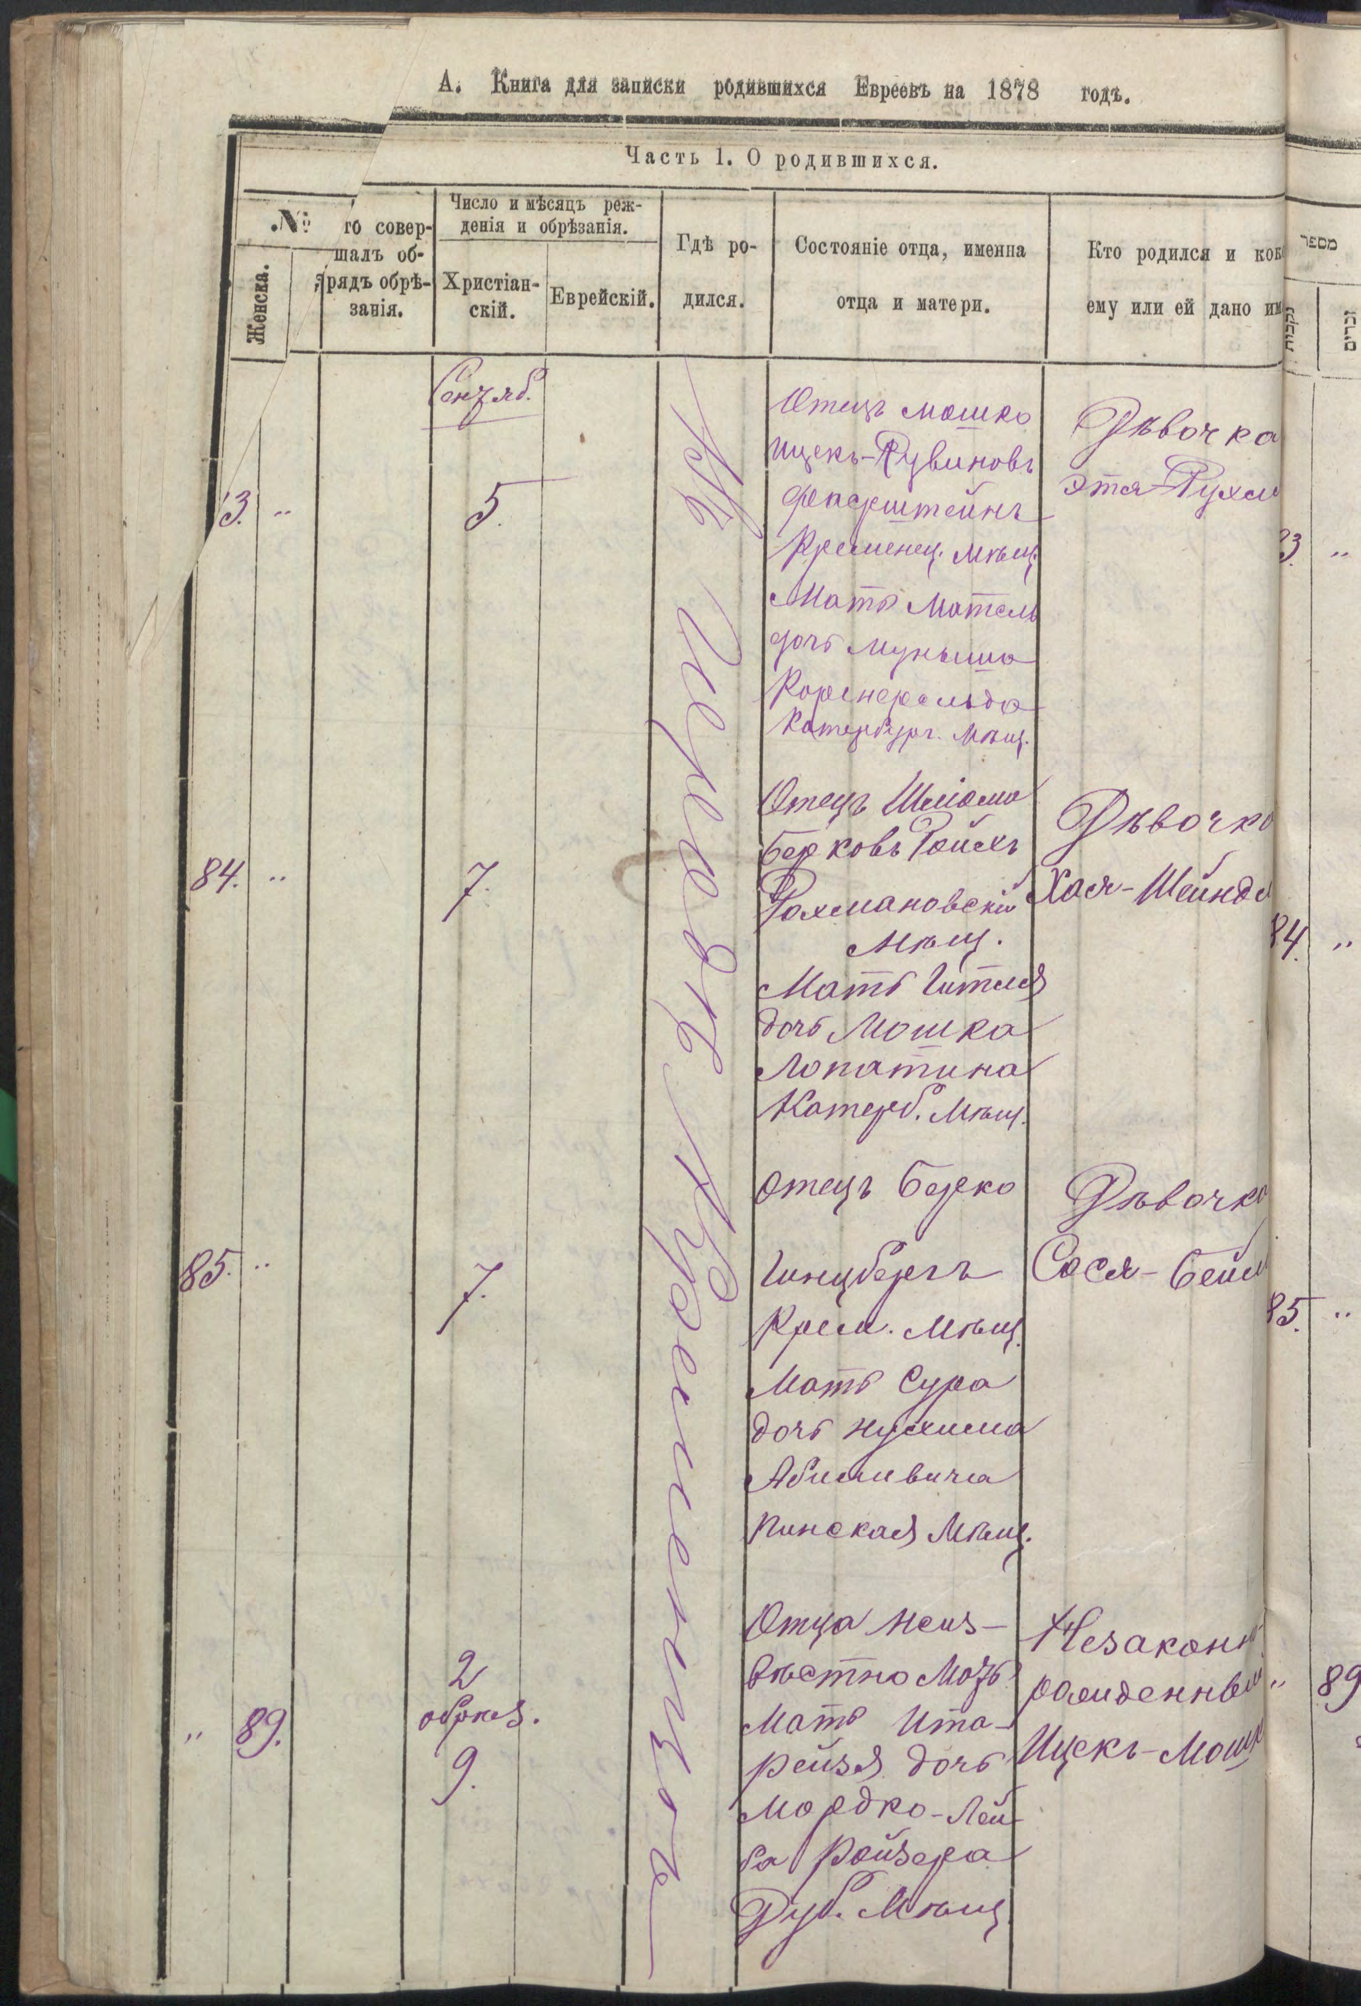 А. Книга для записки родившихся Евреевъ на 1878 годъ.
Часть 1. О родившихся.
№
Женска.
го совер-
шалъ об-
рядъ обрѣ-
занія.
Число и мѣсяцъ рож-
денія и обрѣзанія.
Христіан-
скій.
Еврейскій.
Гдѣ ро-
дился.
Состояніе отца, именна
отца и матери.
Кто родился и
ему или ей дано
מספר
נקבות
זכרים
Сентяб.
Въ
3. „
5.
Отецъ Мошко
Ицекъ-Рувиновъ
Кременец. Мѣщ.
Мать Мотель
дочь
Катербург. Мѣщ.
Дѣвочка
Этя-Рухл
3. „
84. „
7.
Отецъ Шлiома
Берковъ Ройхъ
Рохмановскiй
Мѣщ.
Мать Гитля
дочь Мошка
Лопатина
Катерб. Мѣщ.
Дѣвочка
Хая-Шейндл
84. „
85. „
7.
Отецъ Берко
Гинцбергъ
Крем. Мѣщ.
Мать Сура
дочь Нухима
Пинская Мѣщ.
Дѣвочка
Сося-Бейл
85. „
„ 89.
2
обрѣз.
9.
Отца Неиз-
вѣстно
Мать Ита-
Рейзя дочь
Мордко-Лей-
ба Ройзера
Дуб. Мѣщ.
Незаконно-
рожденный
Ицекъ-Мошк
„ 89